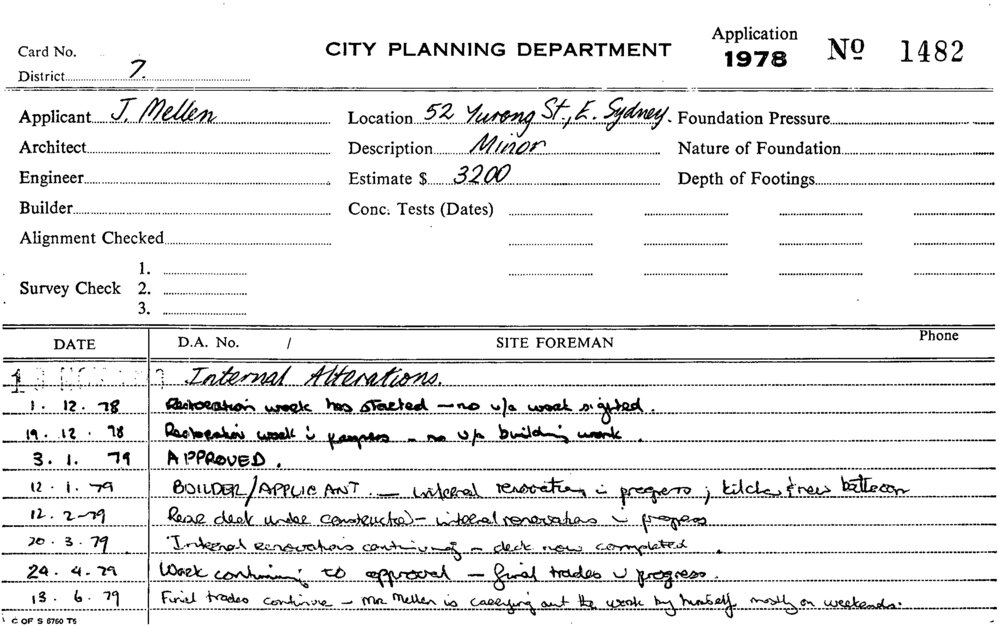 Card No.
CITY PLANNING DEPARTMENT
Application
1978 No 1482
District 7.
Applicant J. Mellen
Location 52 Yurong St., E. Sydney.
Foundation Pressure
Architect
Description Minor
Nature of Foundation
Engineer
Estimate $ 3200
Depth of Footings
Builder
Conc. Tests (Dates)
Alignment Checked
Survey Check 1.
2.
3.
DATE D.A. No. / SITE FOREMAN Phone
Internal Alterations.
1. 12. 78 Restoration work has started - no u/a work sighted.
19. 12. 78 Restoration work in progress - no u/a building work.
3. 1. 79 APPROVED.
12. 1. 79 BUILDER/APPLICANT. - internal renovations in progress; kitchen & new
12. 2. 79 Rear deck under construction - internal renovations in progress
20. 3. 79 Internal renovations continuing - deck now completed.
24. 4. 79 Work continuing to approval - final trades in progress.
13. 6. 79 Final trades continue - Mr Mellen is carrying out the work by himself mostly on weekends.
C OF S 6760 T5